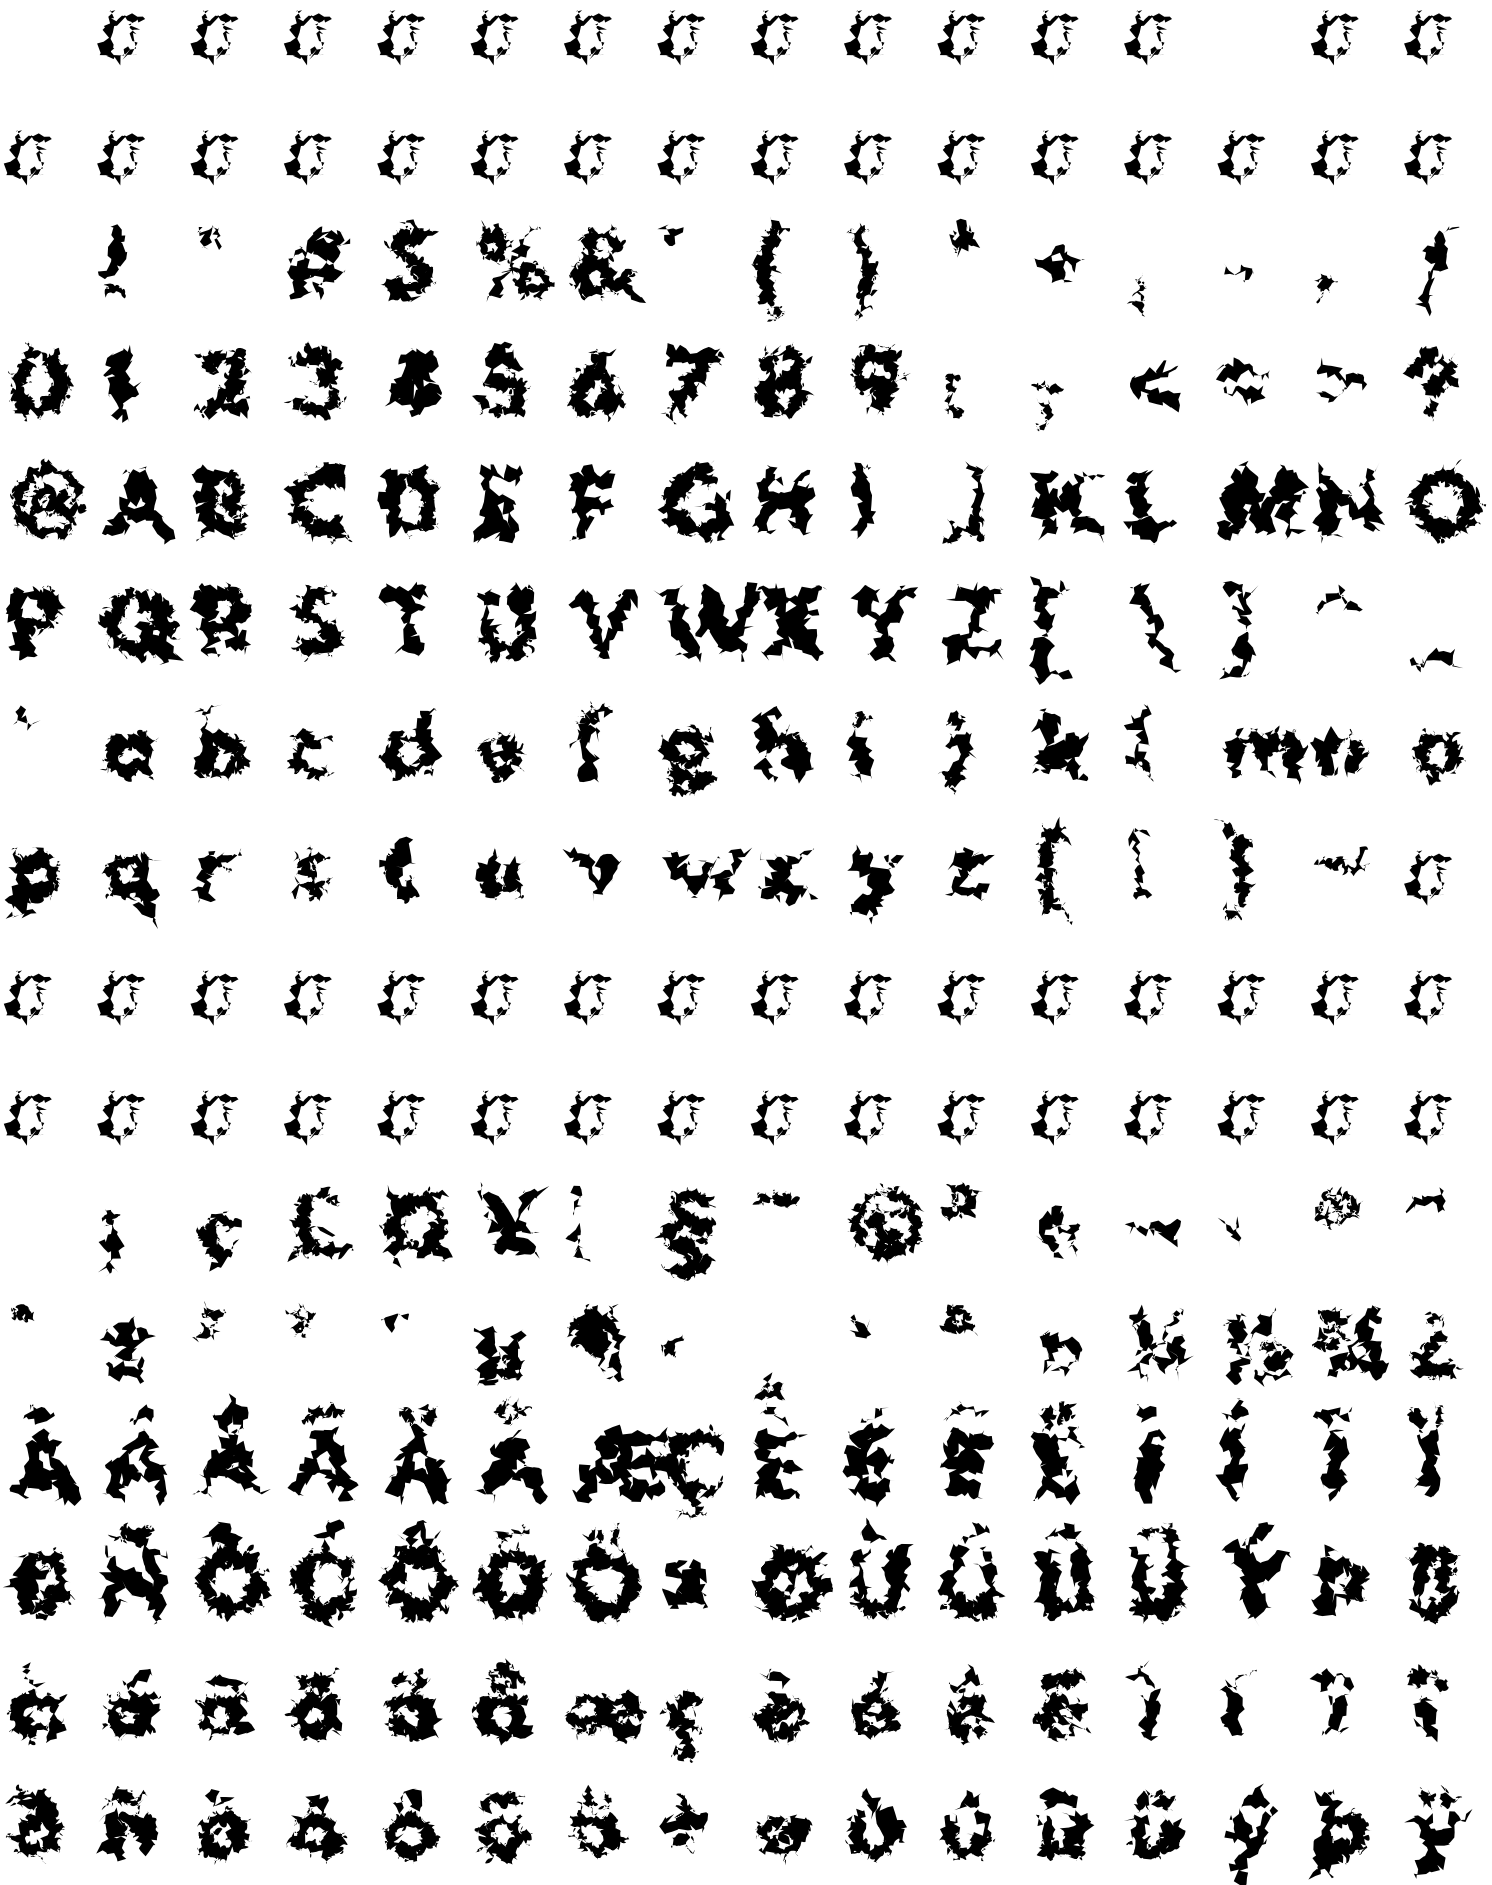 ! " # $ % & ' ( ) * + , - . /
0 1 2 3 4 5 6 7 8 9 : ; < = > ?
@ A B C D E F G H I J K L M N O
P Q R S T U V W X Y Z [ \ ] ^ _
` a b c d e f g h i j k l m n o
p q r s t u v w x y z { | } ~
¡ ¢ £ ¤ ¥ ¦ § ¨ © ª « ¬ - ® ¯
° ± ² ³ ´ µ ¶ · ¸ ¹ º » ¼ ½ ¾ ¿
À Á Â Ã Ä Å Æ Ç È É Ê Ë Ì Í Î Ï
Ð Ñ Ò Ó Ô Õ Ö × Ø Ù Ú Û Ü Ý Þ ß
à á â ã ä å æ ç è é ê ë ì í î ï
ð ñ ò ó ô õ ö ÷ ø ù ú û ü ý þ ÿ